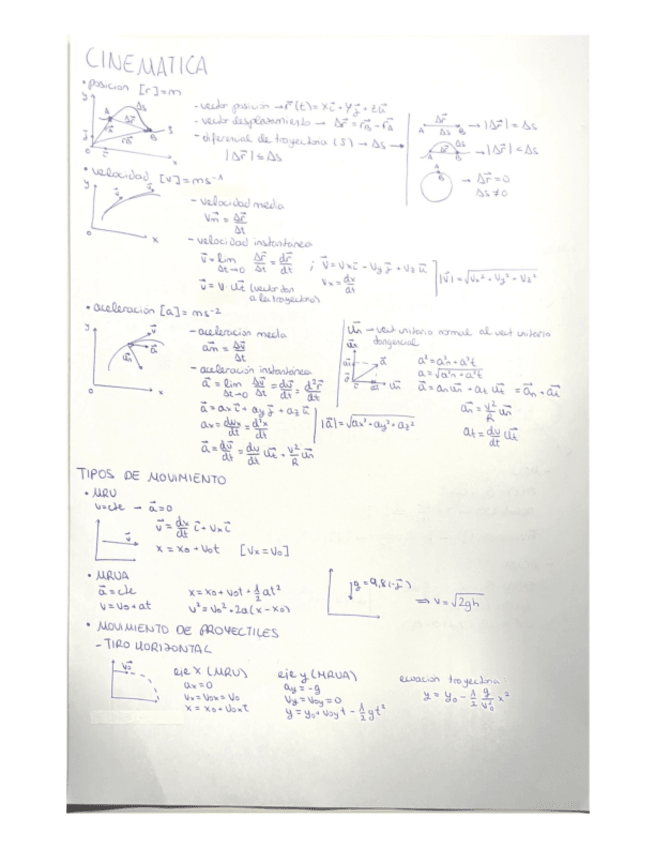 CINEMATICA
• posicion [r]=m
y A Δs Δr⃗ B S x o
- vector posición → r⃗(t)= xi⃗ + yj⃗ + zu⃗
- vector desplazamiento → Δr⃗ = r⃗B - r⃗A
- diferencial de trayectoria (S) → Δs →
|Δr⃗| ≤ Δs
A Δr⃗ Δs B → |Δr⃗| = Δs
A Δr⃗ Δs B → |Δr⃗| < Δs
A B → Δr⃗ = 0
Δs ≠ 0
• velocidad [v]=ms⁻¹
y v⃗ o x
- velocidad media
v⃗m = Δr⃗/Δt
- velocidad instantanea
v⃗ = lim Δt→0 Δr⃗/Δt = dr⃗/dt ; v⃗ = vxi⃗ - vyj⃗ + vzu⃗
vx = dx/dt
|v⃗| = √vx² + vy² + vz²
v⃗ = v · u⃗t (vector tan
a la trayectoria)
• aceleracion [a]= ms⁻²
y v⃗ a⃗ u⃗n o x
- aceleracion media
a⃗m = Δv⃗/Δt
- aceleración instantánea
a⃗ = lim Δt→0 Δv⃗/Δt = dv⃗/dt = d²r⃗/dt
a⃗ = axi⃗ + ayj⃗ + azu⃗
ax = dvx/dt = d²x/dt
|a⃗| = √ax² + ay² + az²
a⃗ = dv⃗/dt = dv/dt u⃗t + v²/R u⃗n
u⃗n → vect unitario normal al vect unitario
tangencial
a² = a²n + a²t
a = √a²n + a²t
a⃗ = an u⃗n + at u⃗t = a⃗n + a⃗t
a⃗n = v²/R u⃗n
at = dv/dt u⃗t
TIPOS DE MOVIMIENTO
• MRU
v=cte → a⃗=0
v⃗
v⃗ = dx/dt i⃗ + vxi⃗
x = x0 + v0t [vx = v0]
• MRUA
a⃗=cte
v = v0 + at
x = x0 + v0t + 1/2 at²
v² = v0² + 2a(x - x0)
g = 9,8(-j⃗)
⇒ v = √2gh
• MOVIMIENTO DE PROYECTILES
- TIRO HORIZONTAL
v⃗0
eje X (MRU)
ax = 0
vx = vox = v0
x = x0 + v0xt
eje y (MRUA)
ay = -g
vy = voy = 0
y = y0 + voyt - 1/2 gt²
ecuacion trayectoria:
y = y0 - 1/2 g/v0² x²